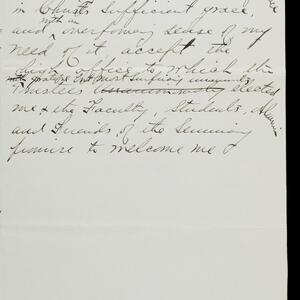 in Christ's sufficient grace
with an
and overpowering sense of my
need of it accept the
office to which the
with most surprising unanimity
Trustees unanimously elected
me & the Faculty, Students, Alumni
and Friends of the Seminary
promise to welcome me &